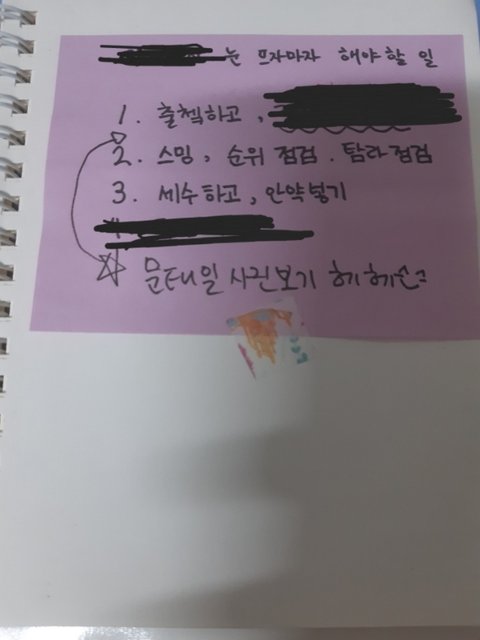 는 뜨자마자 해야할 일
1. 출첵하고,
2. 스밍, 순위 점검. 탐라 점검
3. 세수하고, 안약넣기
문태일 사진보기 헤헤